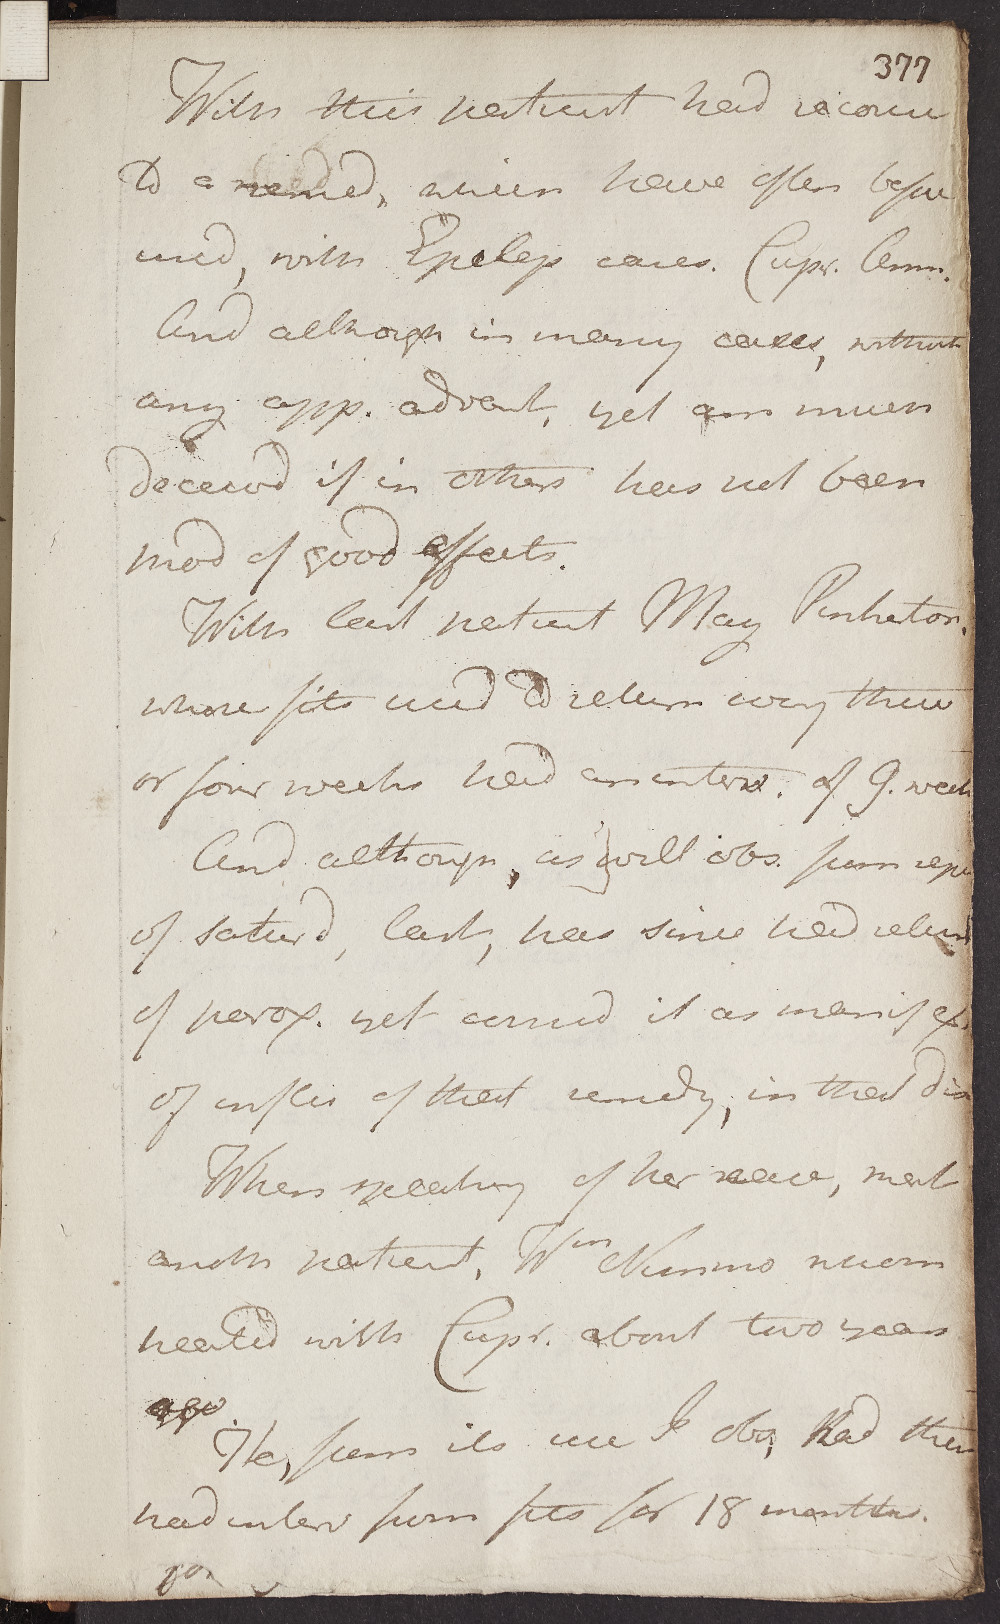 377
With this patient had recour
to a remed, which have often before
used, with Epilep cases. Cupr. Amm.
And although in many cases, without
any app. advant, yet am much
deceivd if in others has not been
prod of good effects.
With last patient May Pinkerton.
whose fits used to return every three
or four weeks had an interv. of 9. week
And although, as will obs. from repo
of saturd, last, has since had return
of parox. yet consid it as manif ex
of influ of that remedy, in that dis
When speaking of her case, ment
anoth patient, Wm Nimmo whom
treated with Cupr. about two years
ago
He, from its use I obs, had then
had interv from fits for 18 months.